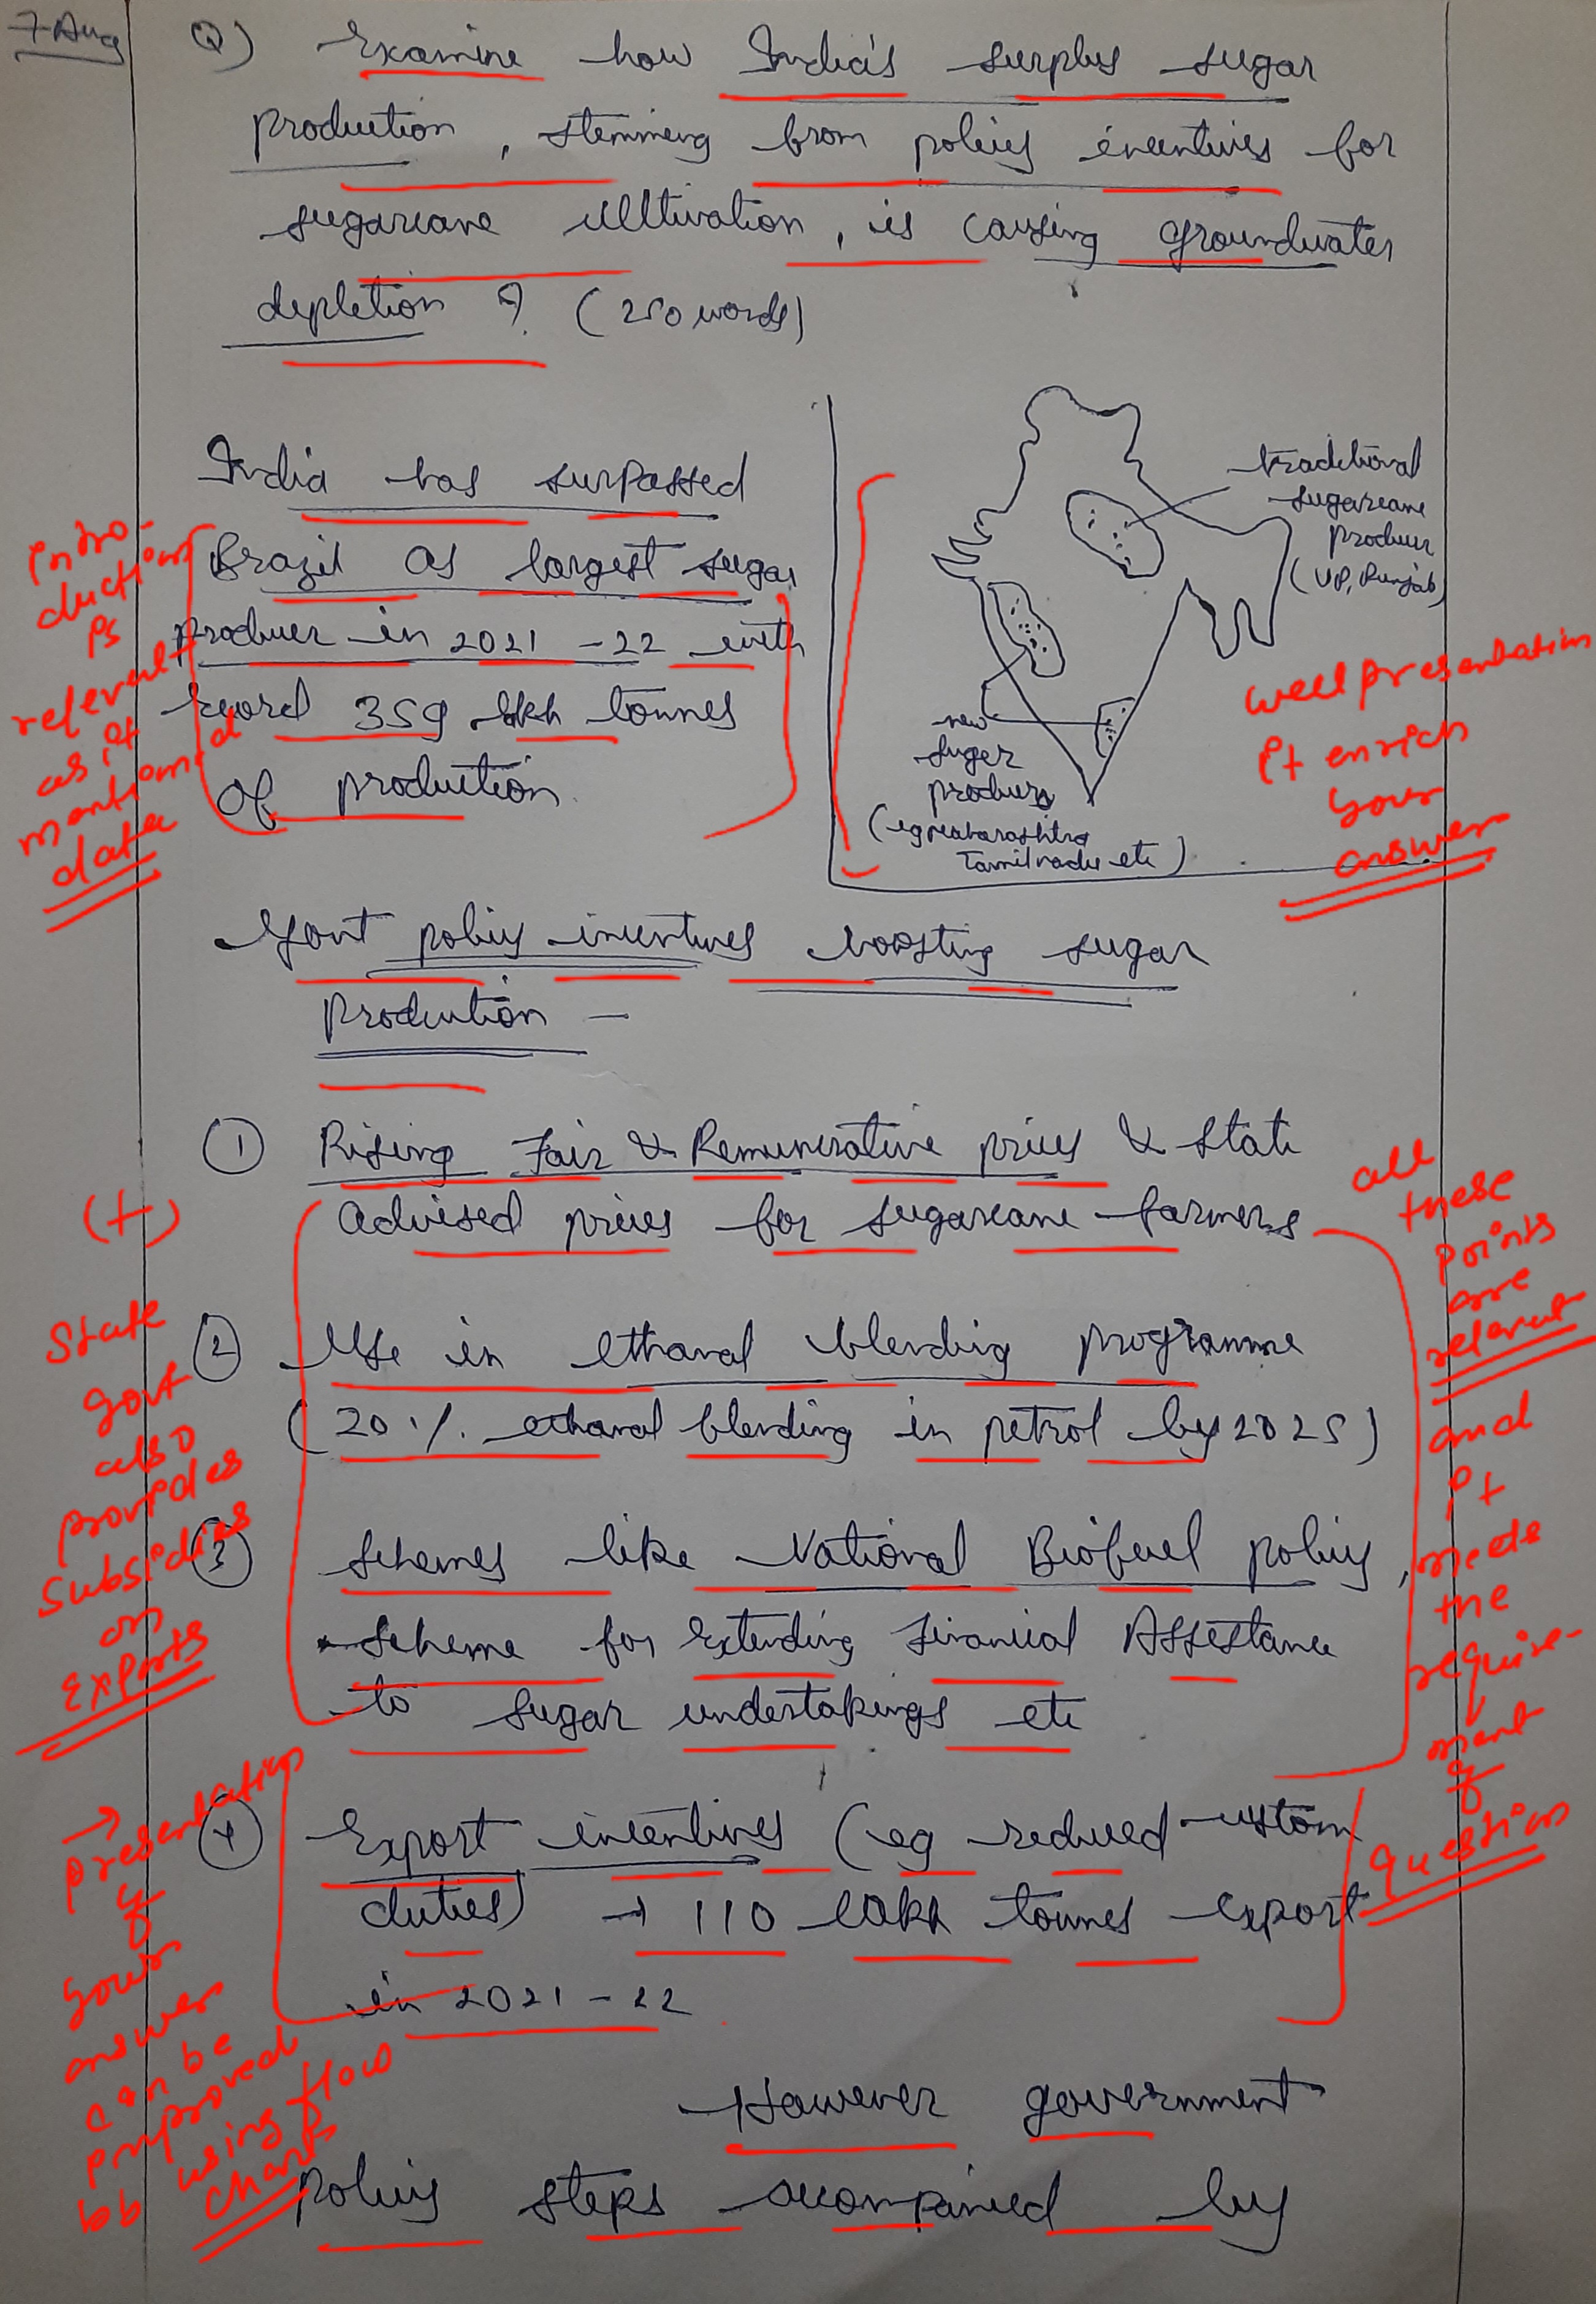 7 Aug
Q) Examine how India's surplus sugar
production, stemming from policy incentives for
sugarcane cultivation, is causing groundwater
depletion ? (250 words)
India has surpassed
Brazil as largest sugar
producer in 2021-22 with
record 359 lakh tonnes
of production.
traditional
sugarcane
producer
(UP, Punjab)
new
sugar
producers
(eg Maharashtra
Tamilnadu etc)
Intro-
duction
is
relevant
as it
mentioned
data
well presentation
it enrich
your
answer
Govt policy incentives boosting sugar
production -
① Rising Fair & Remunerative prices & State
advised prices for sugarcane farmers
② Use in ethanol blending programme
(20%. ethanol blending in petrol by 2025)
③ Schemes like National Biofuel policy,
Scheme for Extending Financial Assistance
to sugar undertakings etc
④ Export incentives (eg reduced custom
duties) → 110 lakh tonnes export
in 2021-22
However government
policy steps accompanied by
(+)
State
govt
also
provides
subsidies
on
Exports
→
presentation
of
your
answer
can be
improved
by using flow
charts
all
these
points
are
relevant
and
it
meets
the
require-
ment
of
question